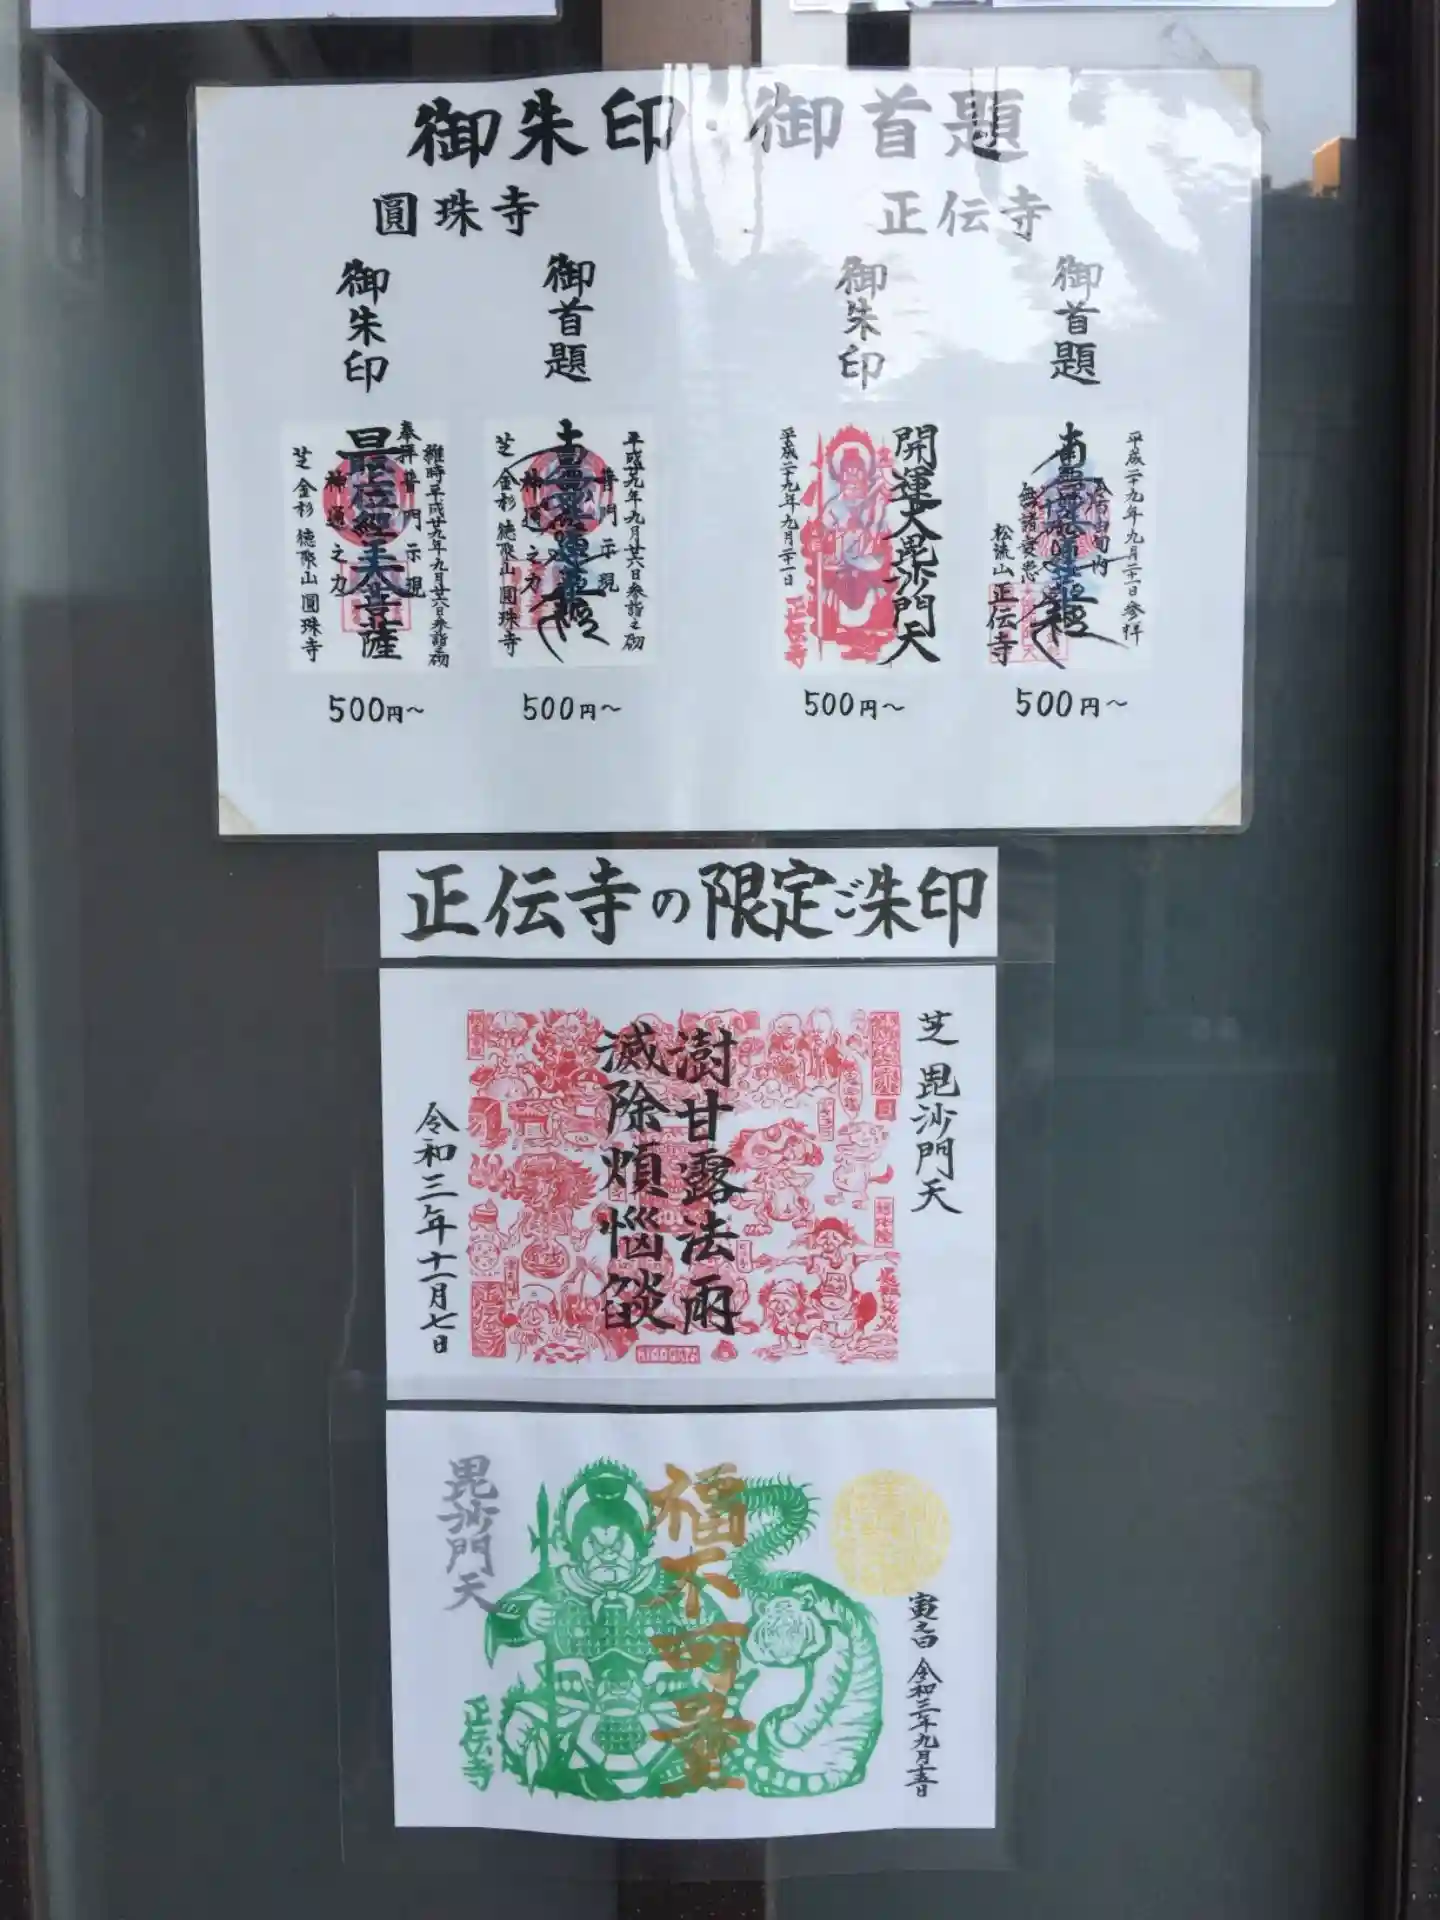 御朱印・御首題
圓珠寺
正伝寺
御朱印
御首題
御朱印
御首題
奉拝
最上位経王大菩薩
普門示現
神通之力
維時平成廿九年九月廿六日参詣之砌
芝金杉 徳聚山 圓珠寺
平成廿九年九月廿六日参詣之砌
普門示現
南無妙法蓮華経
神通之力
芝金杉 徳聚山 圓珠寺
開運大毘沙門天
平成二十九年九月二十一日
正伝寺
平成二十九年九月二十一日参拝
南無妙法蓮華経
無諸衰患
松流山 正伝寺
500円〜
500円〜
500円〜
500円〜
正伝寺の限定ご朱印
芝 毘沙門天
澍甘露法雨
滅除煩悩燄
令和三年十一月七日
毘沙門天
福不可量
寅之日 令和三年九月十五日
正伝寺